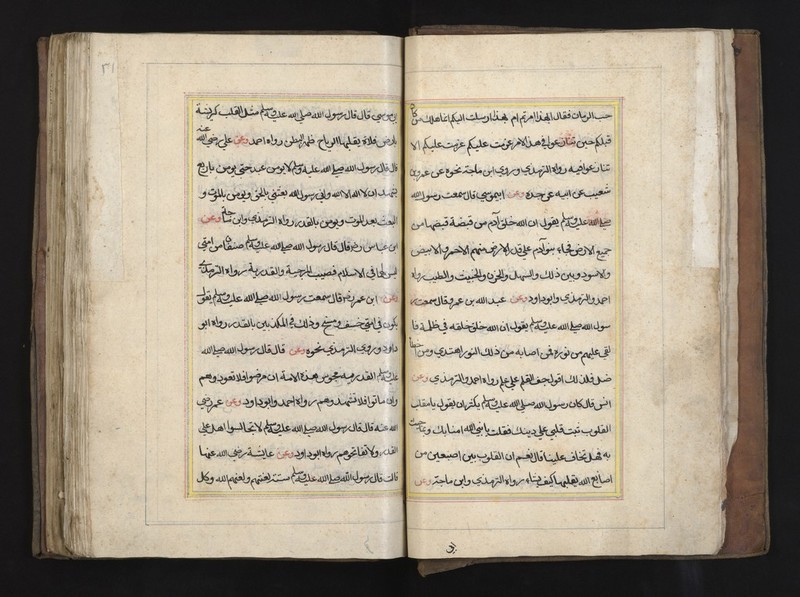 حب الرمان فقال ابهذا امرتم ام بهذا ارسلت اليكم انما هلك من كان
قبلكم حين تنازعوا في هذا الامر عزمت عليكم عزمت عليكم الا
تنازعوا فيه رواه الترمذي وروى ابن ماجة نحوه عن عمرو بن
شعيب عن ابيه عن جده وعن ابي موسى قال سمعت رسول الله
صلى الله عليه وسلم يقول ان الله خلق آدم من قبضة قبضها من
جميع الارض فجاء بنو آدم على قدر الارض منهم الاحمر والابيض
والاسود وبين ذلك والسهل والحزن والخبيث والطيب رواه
احمد والترمذي وابو داود وعن عبد الله بن عمرو قال سمعت ر
سول الله صلى الله عليه وسلم يقول ان الله خلق خلقه في ظلمة فا
لقى عليهم من نوره فمن اصابه من ذلك النور اهتدى ومن اخطأ
ضل فلذلك اقول جف القلم على علم رواه احمد والترمذي وعن
انس قال كان رسول الله صلى الله عليه وسلم يكثر ان يقول يا مقلب
القلوب ثبت قلبي على دينك فقلت يا نبي الله امنا بك وبما جئت
به فهل تخاف علينا قال نعم ان القلوب بين اصبعين من
اصابع الله يقلبها كيف يشاء رواه الترمذي وابن ماجة وعن
٣١
ابي موسى قال قال رسول الله صلى الله عليه وسلم مثل القلب كريشة
بارض فلاة يقلبها الرياح ظهر البطن رواه احمد وعن علي رضي الله عنه
قال قال رسول الله صلى الله عليه وسلم لا يؤمن عبد حتى يؤمن باربع
يشهد ان لا اله الا الله واني رسول الله بعثني بالحق ويؤمن بالموت و
البعث بعد الموت ويؤمن بالقدر رواه الترمذي وابن ماجة وعن
ابن عباس قال قال رسول الله صلى الله عليه وسلم صنفان من امتي
ليس لهما في الاسلام نصيب المرجية والقدرية رواه الترمذي
وعن ابن عمر قال سمعت رسول الله صلى الله عليه وسلم يقول
يكون في امتي خسف ومسخ وذلك في المكذبين بالقدر رواه ابو
داود وروى الترمذي نحوه وعن قال قال رسول الله صلى الله
عليه وسلم القدرية مجوس هذه الامة ان مرضوا فلا تعودوهم
وان ماتوا فلا تشهدوهم رواه احمد وابو داود وعن عمر رضي
الله عنه قال قال رسول الله صلى الله عليه وسلم لا تجالسوا اهل
القدر ولا تفاتحوهم رواه ابو داود وعن عائشة رضي الله عنها
قالت قال رسول الله صلى الله عليه وسلم ستة لعنتهم ولعنهم الله وكل